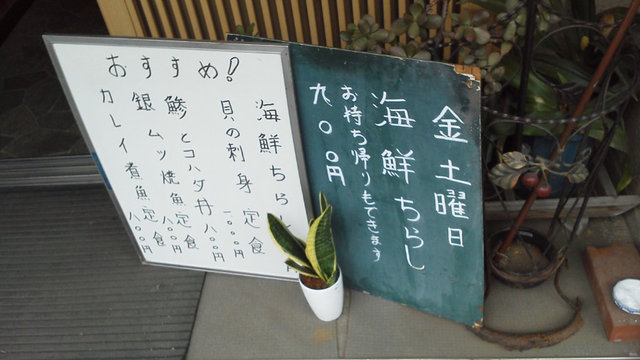 おすすめ!
海鮮ちらし
貝の刺身定食 一〇〇〇円
鯵とコハダ丼 八〇〇円
銀ムツ焼魚定食 八〇〇円
カレイ煮魚定食 八〇〇円
金土曜日
海鮮ちらし
お持ち帰りもできます
九〇〇円